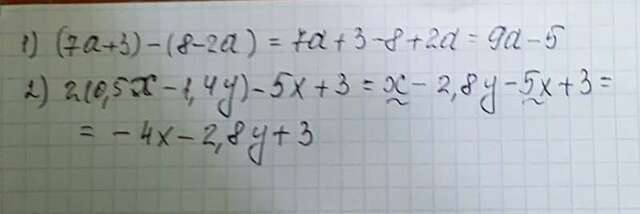 1) (7a+3)-(8-2a) = 7a+3-8+2a = 9a-5
2) 2(0,5x-1,4y)-5x+3 = x-2,8y-5x+3 =
= -4x-2,8y+3